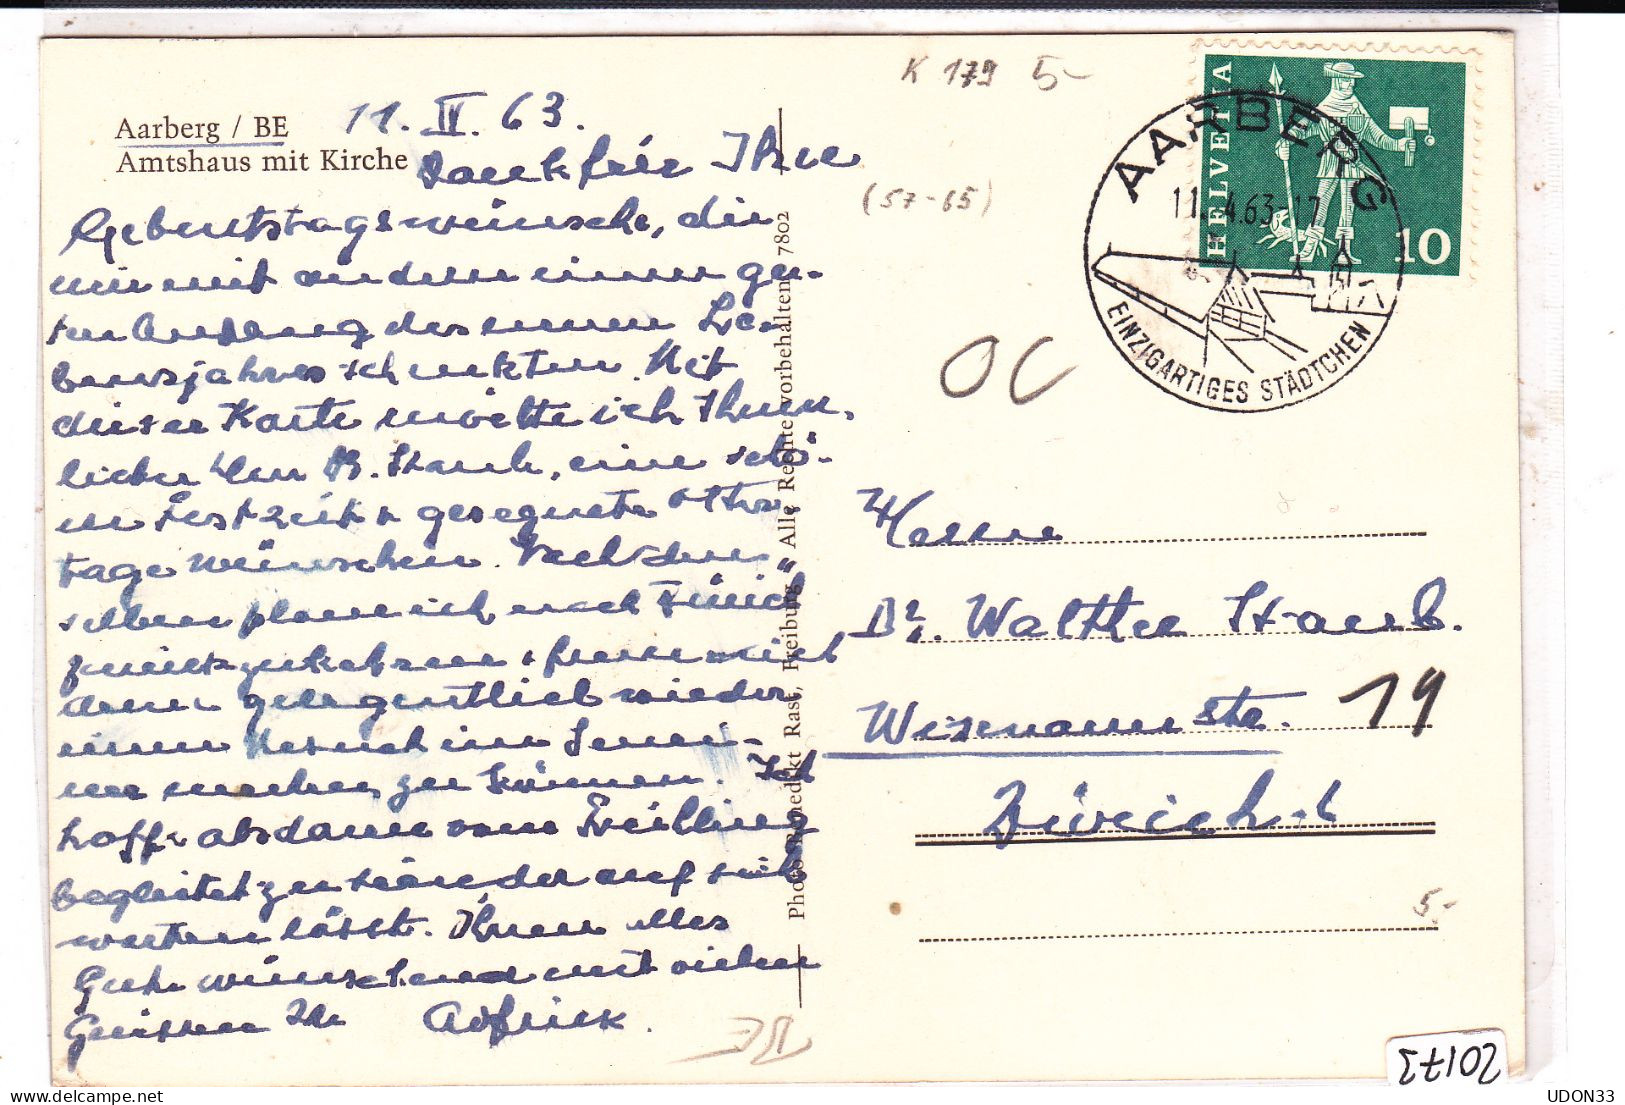 K 179 5-
Aarberg / BE
Amtshaus mit Kirche
11. IV. 63.
Dank für Ihre
Geburtstagswünsche, die
mir mit andern einen gu-
ten Anfang des neuen Le-
bensjahres schenkten. Mit
dieser Karte möchte ich Ihnen,
lieber Herr Dr. Staub, eine schö-
ne Festzeit & gesegnete Oster
tage wünschen. Nach den
selben plane ich nach Zürich
zurückzukehren & freue mich
dann gelegentlich wieder
einen Besuch im Semi-
nar machen zu können. Ich
hoffe alsdann vom Frühling
begleitet zu sein, der auf sich
warten lässt. Ihnen alles
Gute wünschend mit vielen
Grüssen Ihr
Photo Benedikt Rast, Freiburg Alle Rechte vorbehalten 7802
(57-65)
HELVETIA
10
AARBERG
11.4.63-17
EINZIGARTIGES STÄDTCHEN
OC
Herrn
Dr. Walther Staub.
Wisenaustr. 19
Zürich-
5.-
20173
UDON33